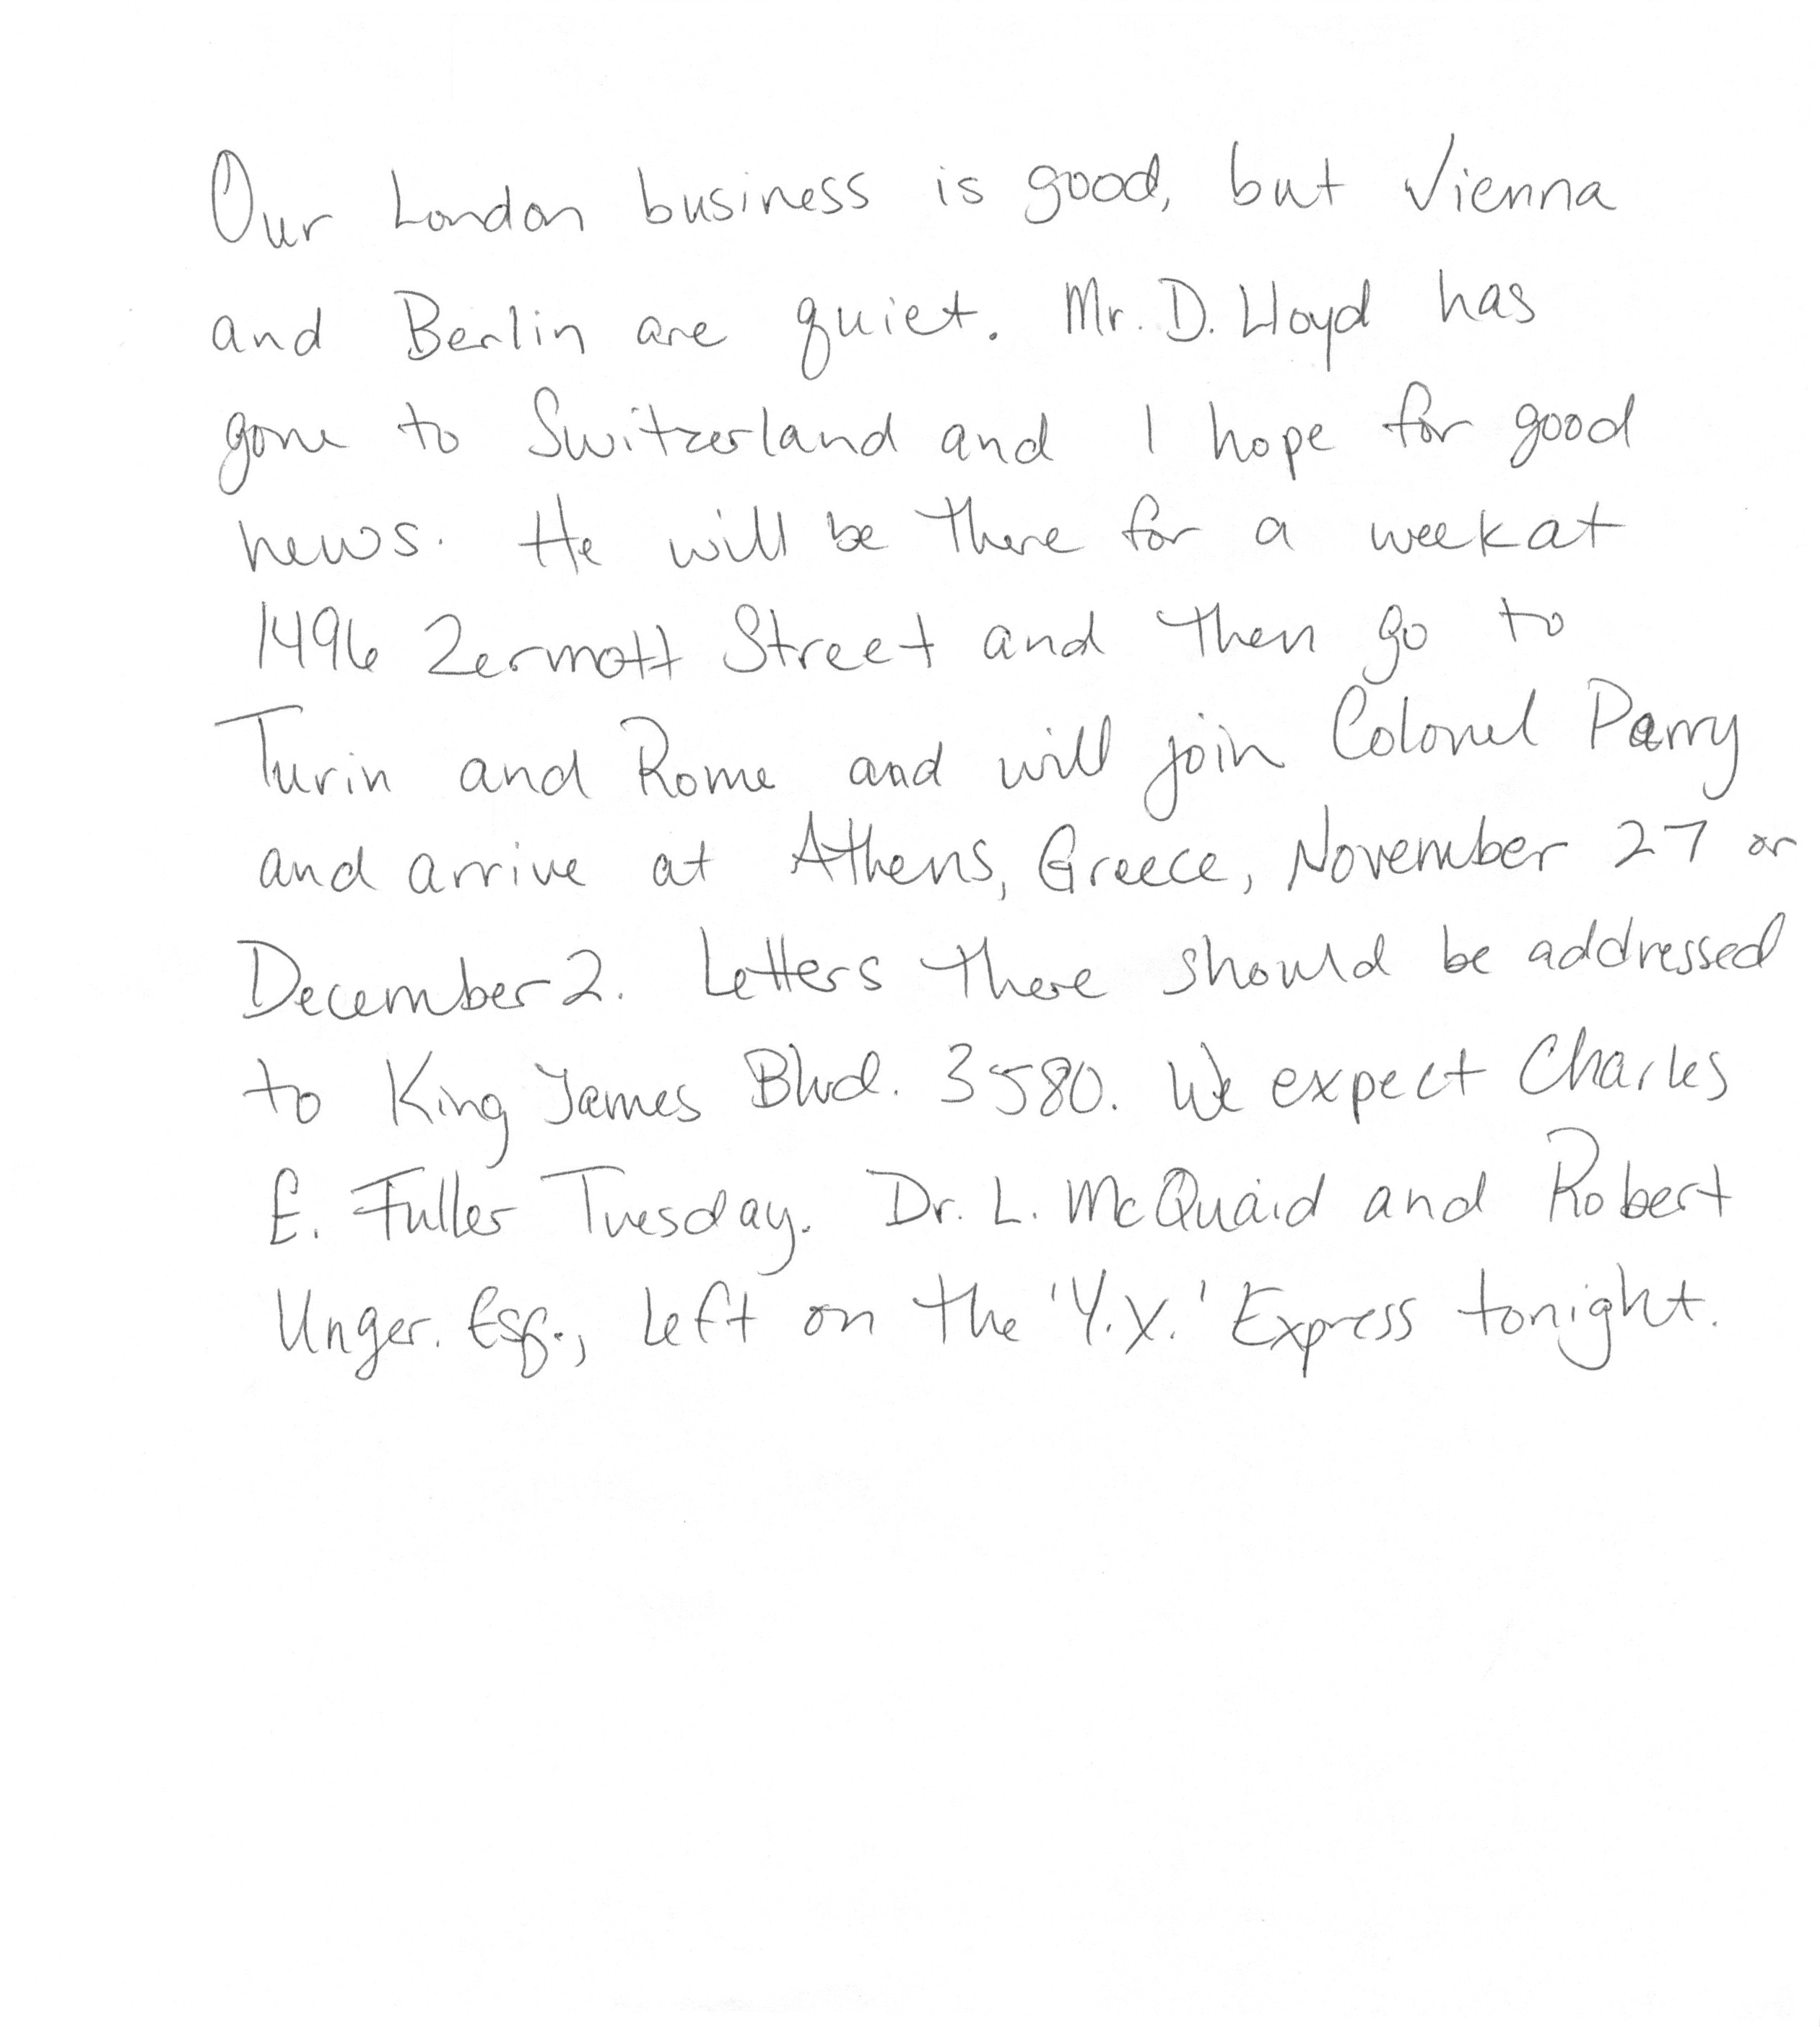 Our London business is good, but Vienna
and Berlin are quiet. Mr. D. Lloyd has
gone to Switzerland and I hope for good
news. He will be there for a week at
1496 Zermott Street and then go to
Turin and Rome and will join Colonel Parry
and arrive at Athens, Greece, November 27 or
December 2. Letters there should be addressed
to King James Blvd. 3580. We expect Charles
E. Fuller Tuesday. Dr. L. McQuaid and Robert
Unger. Esq., left on the 'Y.X.' Express tonight.